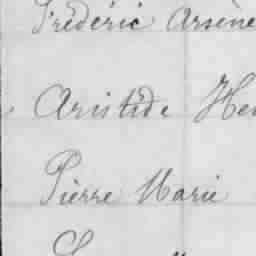 Frédéric Arsène
Aristide
Pierre Marie